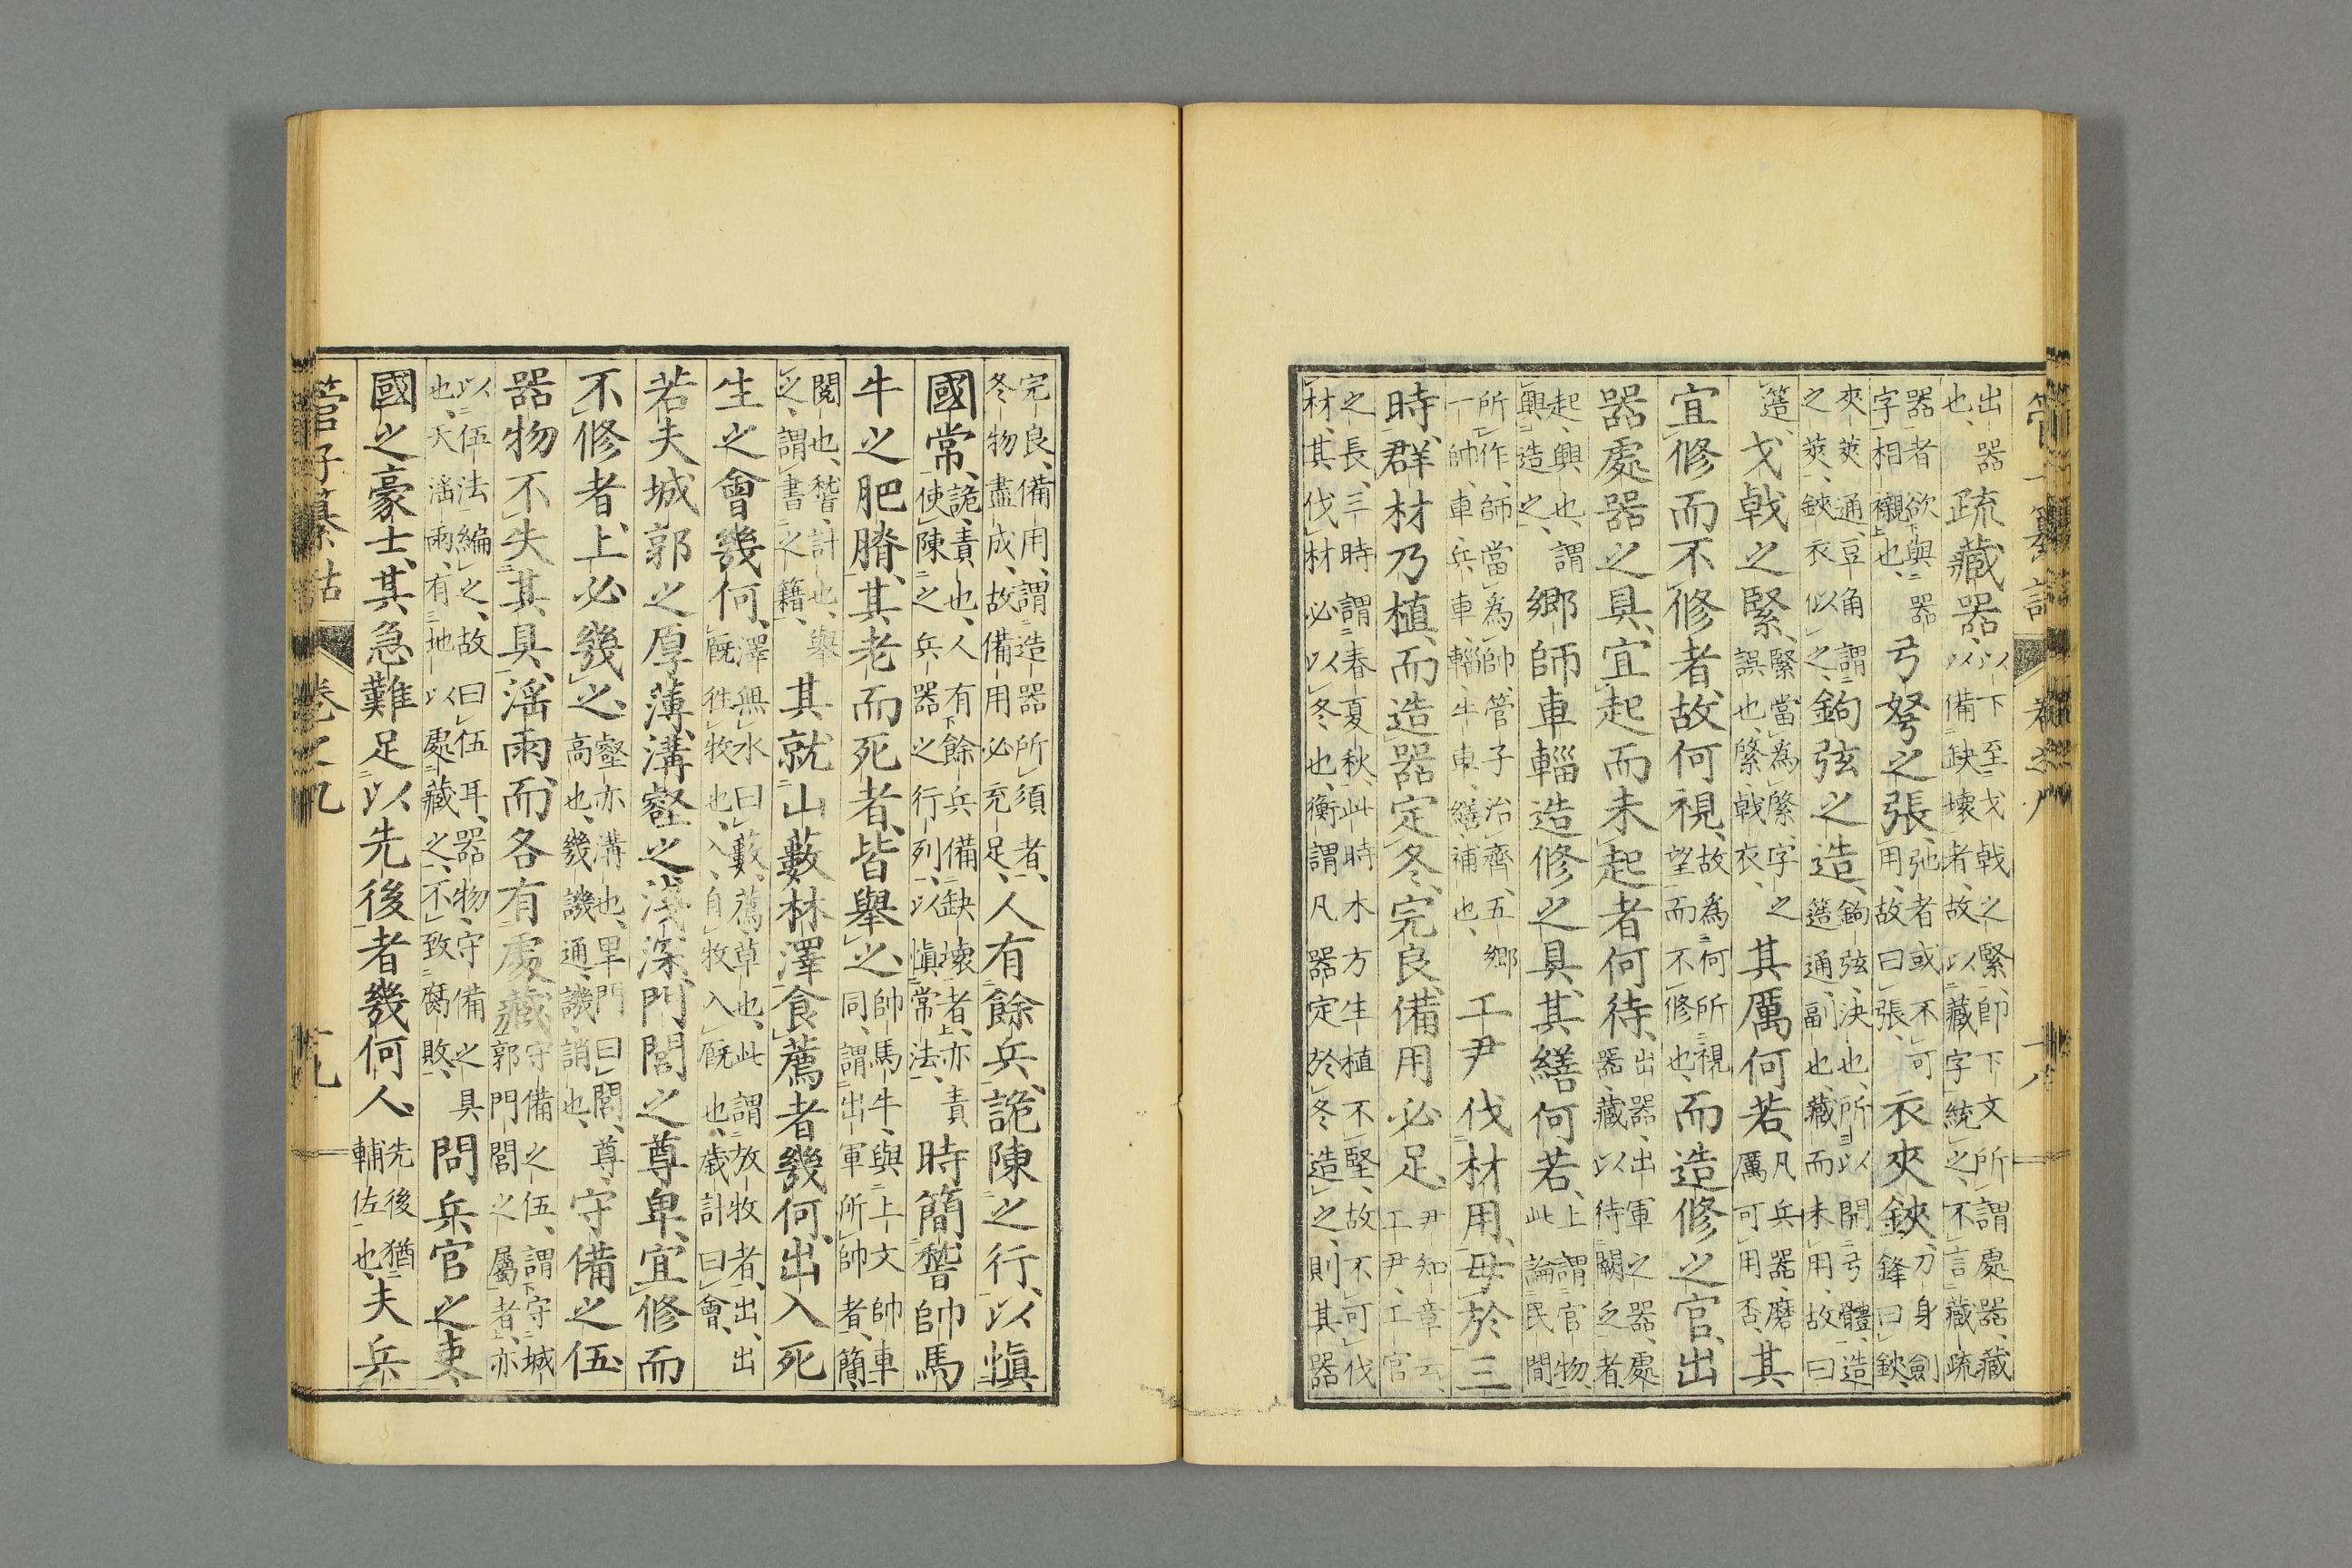 管子纂詁 卷之九 十八
出器也、疏藏器、以下至戈戟之緊、卽下文所謂處器、藏以備缺壞者、故以藏字統之、不言藏疏
器者欲與器字相襯也、弓弩之張、弛者或不可用、故曰張、衣夾鋏、刀身劍鋒曰鋏、
夾莢通、豆角謂之莢、鋏衣似之、鉤弦之造、鉤弦、決也、所以開弓體、造簉通、副也、藏而未用、故曰
簉、戈戟之緊、緊當爲綮字之誤也、綮戟衣、其厲何若、凡兵器、磨厲可用否、其
宜修而不修者故何視、故爲何所視望而不修也、而造修之官、出
器處器之具、宜起而未起者何待、出器、出軍之器、處器、藏以待闕乏者、
起、興也、謂興造之、鄉師車輜造修之具、其繕何若、上謂官物、此論民間
所作、師當爲帥、管子治齊、五鄉一帥、車、兵車、輜、牛車、繕、補也、工尹伐材用、毋於三
時、群材乃植、而造器定冬、完良、備用必足、尹知章云、工尹、工官
之長、三時謂春夏秋、此時木方生植不堅、故不可伐材、其伐材必以冬也、衡謂凡器定於冬造之、則其器
完良、備用、謂造器所須者、冬物盡成、故備用必充足、人有餘兵、詭陳之行、以愼
國常、詭、責也、人有餘兵備缺壞者、亦責使陳之兵器之行列、以愼常法、時簡稽帥馬
牛之肥膌、其老而死者、皆舉之、帥馬牛、與上文帥車同、謂出軍所帥者、簡、
閱也、稽、計也、舉之、謂書之籍、其就山藪林澤食薦者幾何、出入死
生之會幾何、澤無水曰藪、薦、草也、此謂放牧者、出、出廐往牧也、入、自牧入廐也、歲計曰會、
若夫城郭之厚薄、溝壑之淺深、門閭之尊卑、宜修而
不修者、上必幾之、壑亦溝也、里門曰閭、尊、高也、幾譏通、譏、誚也、守備之伍、
器物不失其具、淫雨而各有處藏、守備之伍、謂守城郭門閭之屬者、亦
以伍法編之、故曰伍耳、器物、守備之具也、天淫雨、有地以處藏之、不致腐敗、問兵官之吏、
國之豪士、其急難足以先後者幾何人、先後猶輔佐也、夫兵
管子纂詁 卷之九 十九